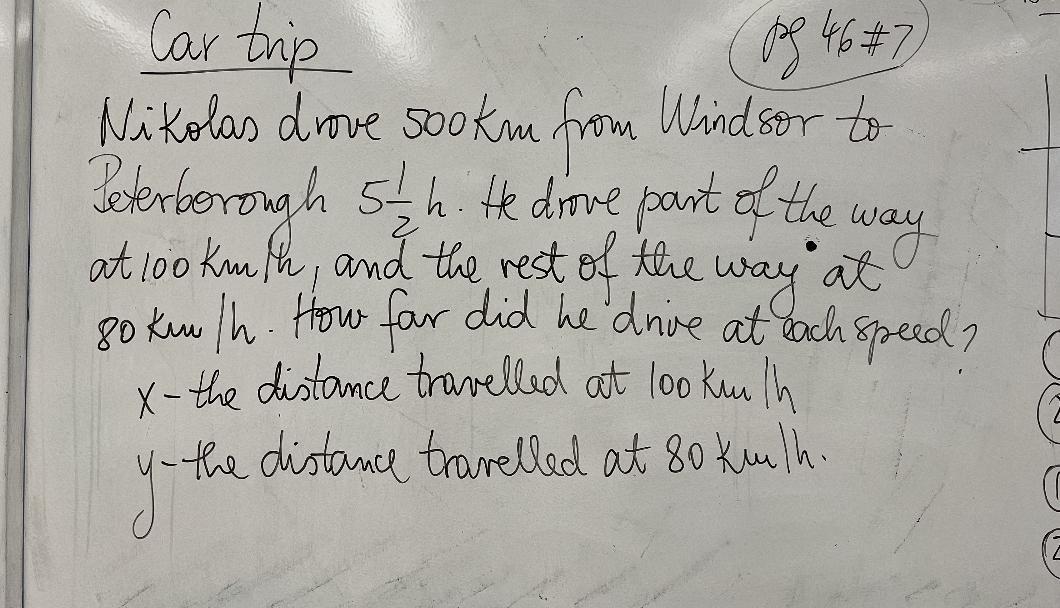 Car trip
pg 46 #7
Nikolas drove 500 km from Windsor to
Peterborough 5 1/2 h. He drove part of the way
at 100 km/h, and the rest of the way at
80 km/h. How far did he drive at each speed?
x - the distance travelled at 100 km/h
y - the distance travelled at 80 km/h.